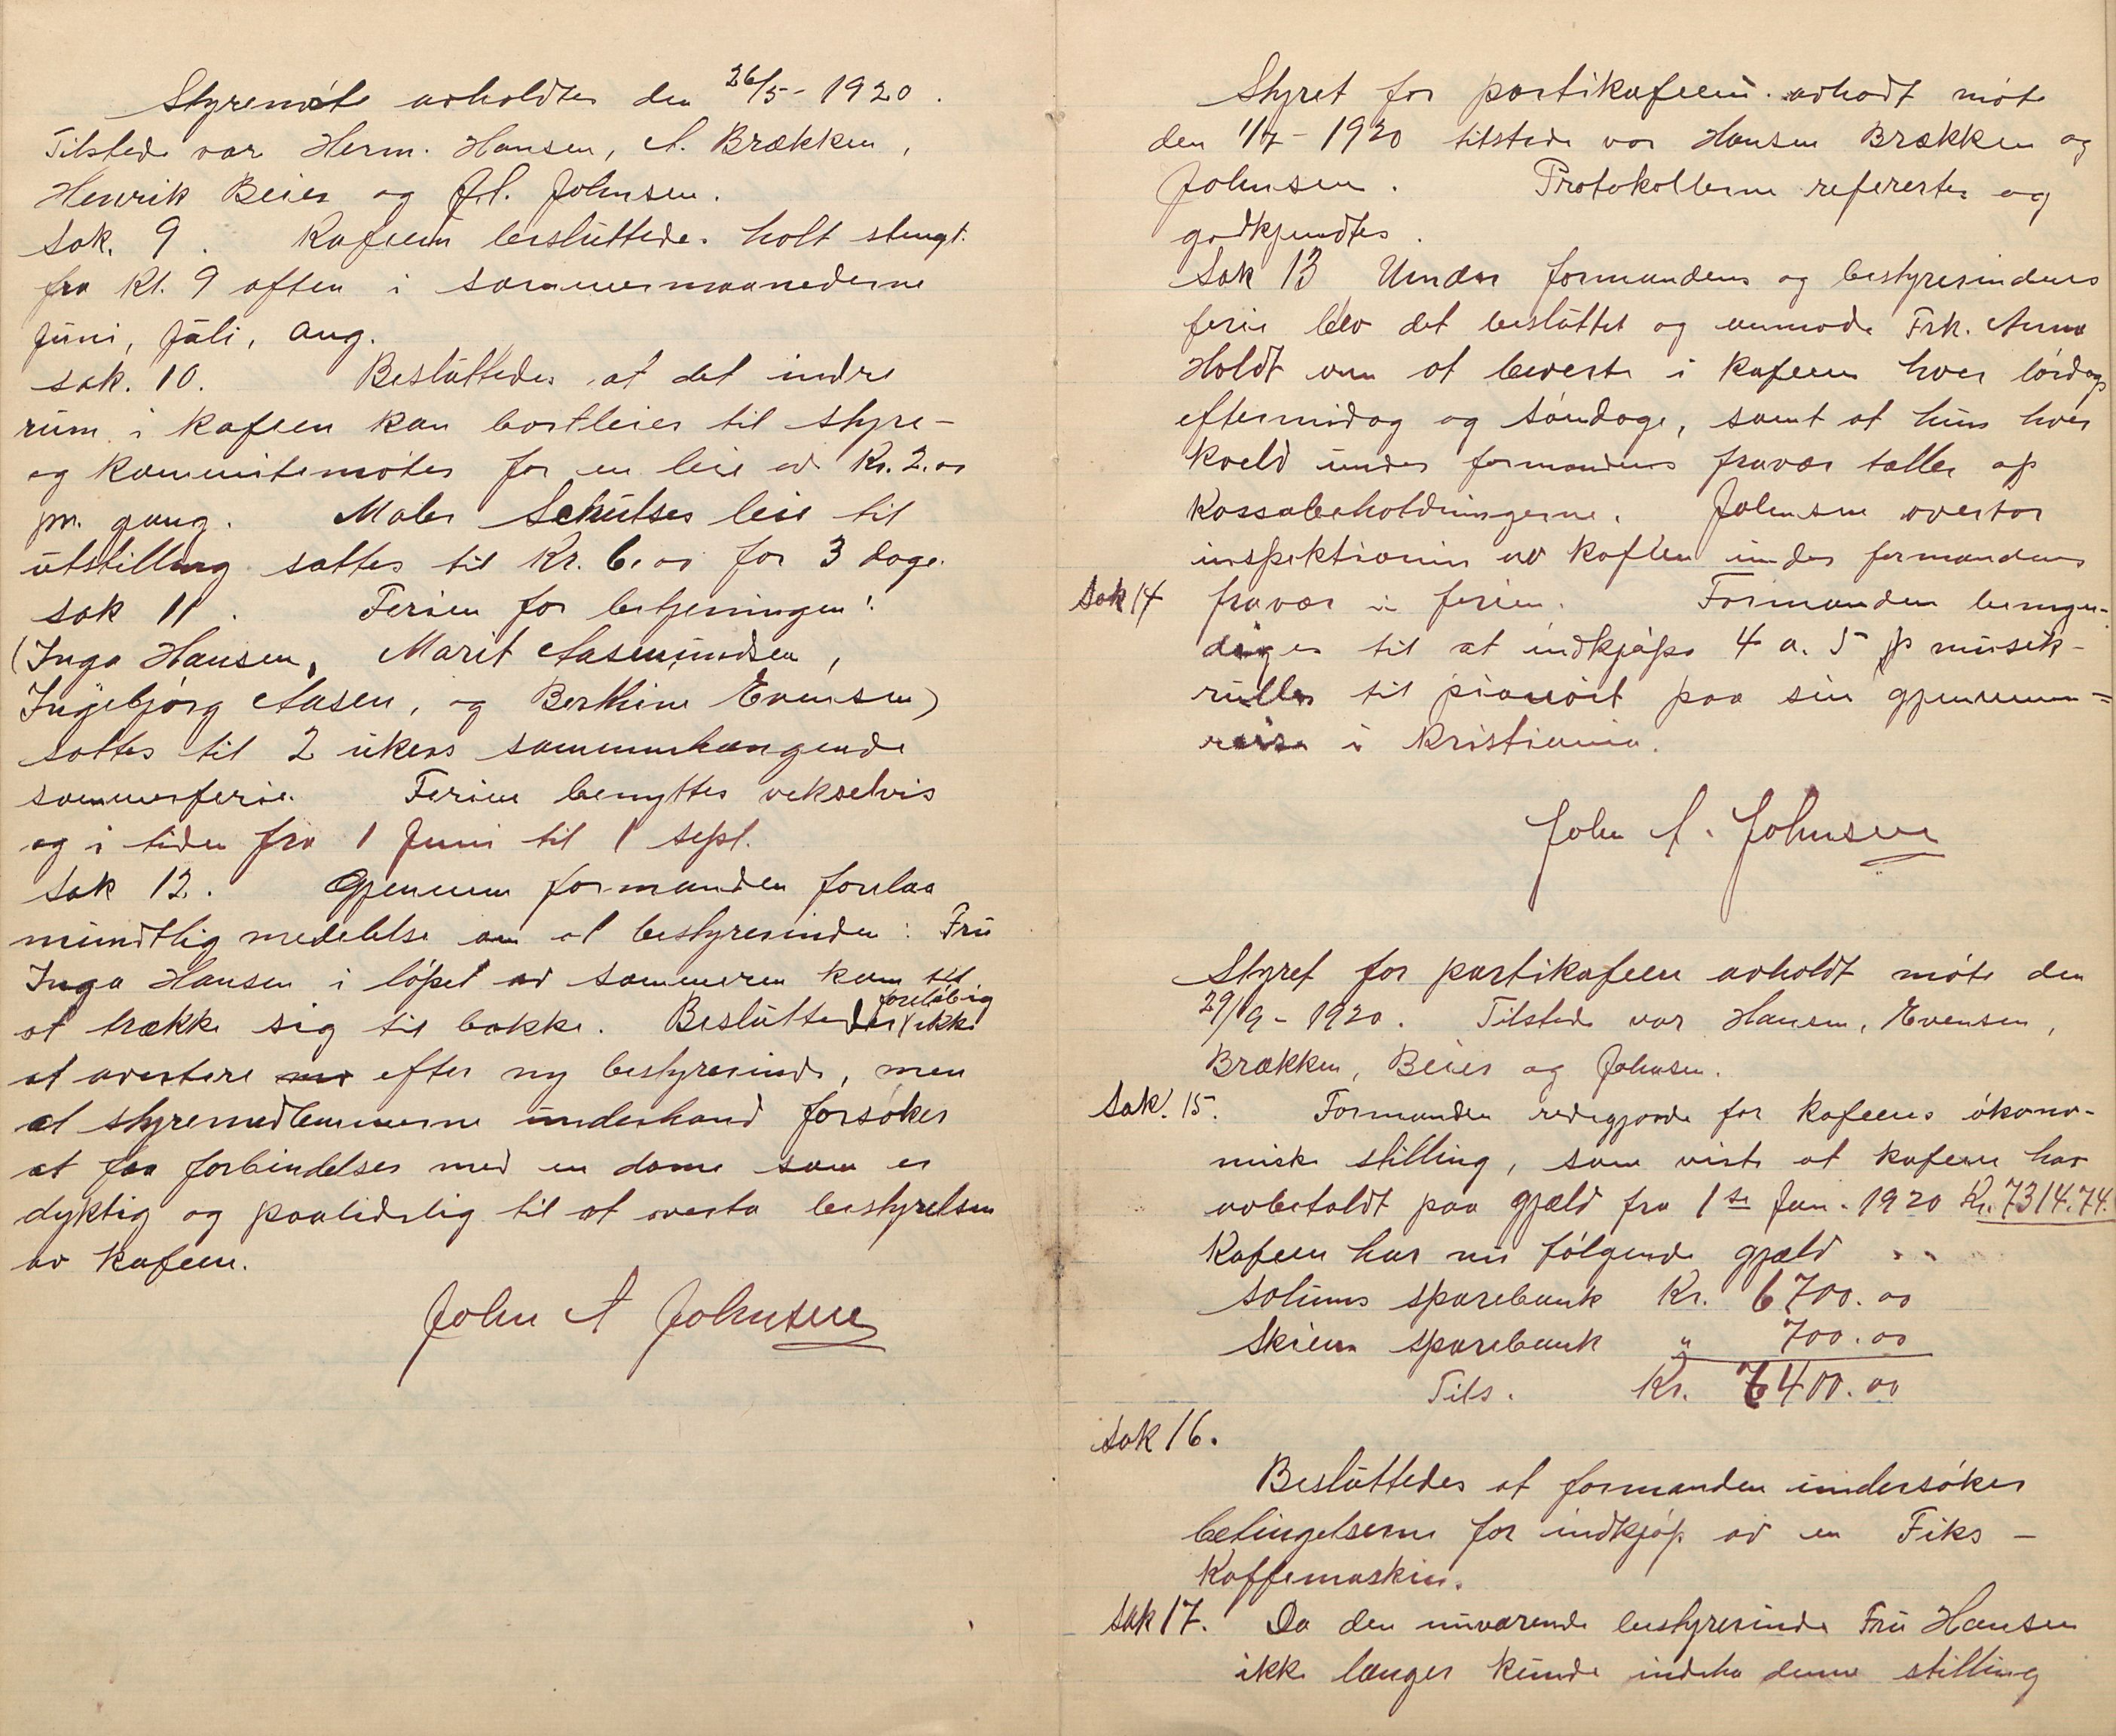 Styremøte avholdtes den 26/5 - 1920.
Tilstede var Herm. Hansen, A. Brækken,
Henrik Beier og Joh. Johnsen.
Sak. 9. Kafeen besluttedes holt stengt
fra Kl. 9 aften i sommermaanederne
Juni, Juli, Aug.
sak. 10. Besluttedes at det indre
rum i kafeen kan bortleies til styre-
og kommitemøter for en leie av Kr. 2.00
pr. gang. Maler Schultses leie til
utstilling sattes til Kr. 6.00 for 3 dage.
sak 11. Ferien for betjeningen:
(Inga Hansen, Marit Aasmundsen,
Ingebjørg Aasen, og Berthine Evensen)
sattes til 2 ukers sammenhængende
sommerferie. Ferien benyttes vekselvis
og i tiden fra 1 Juni til 1 sept.
Sak 12. Gjennem formanden forelaa
mundtlig medelelse om at bestyrerinden: Fru
Inga Hansen i løpet av sommeren kom til
at trække sig til bakke. Besluttedes foreløbig ikke
at avertere efter ny bestyrerinde, men
at styremedlemmerne underhaand forsøker
at faa forbindelser med en dame som er
dyktig og paalidelig til at overta bestyrelsen
av kafeen.
John A Johnsen
Styret for partikafeen avhodt møte
den 1/7 - 1920 tilstede var Hansen Brækken og
Johnsen. Protokollerne refererte og
godkjendtes.
Sak 13 Under formandens og bestyrerindens
ferie blev det besluttet og anmode Frk. Anna
Holdt om at beverte i kafeen hver lørdags
eftermidag og søndage, samt at hun hver
kveld under formandens fravær tæller op
kassabeholdningerne. Johnsen overtar
inspektionen av kafeen under formandens
Sak 14 fravær i ferien. Formanden bemyn-
diges til at indkjøpe 4 a. 5 musik-
ruller til pianoet paa sin gjennem=
reise i Kristiania.
John A. Johnsen
Styret for partikafeen avholdt møte den
29/9 - 1920. Tilstede var Hansen, Evensen,
Brækken, Beier og Johnsen.
Sak. 15. Formanden redegjorde for kafeens økono-
miske stilling, som viste at kafeen har
avbetaldt paa gjæld fra 1ste Jan. 1920 Kr. 7314.74.
Kafeen har nu følgende gjæld
Solums sparebank Kr. 6700.00
Skiens sparebank " 700.00
Tils. Kr. 7400.00
Sak 16.
Besluttedes at formanden undersøker
betingelserne for indkjøp av en Fiks -
Kaffemaskin.
Sak 17. Da den nuværende bestyrerinde Fru Hansen
ikke længer kunde indeha denne stilling